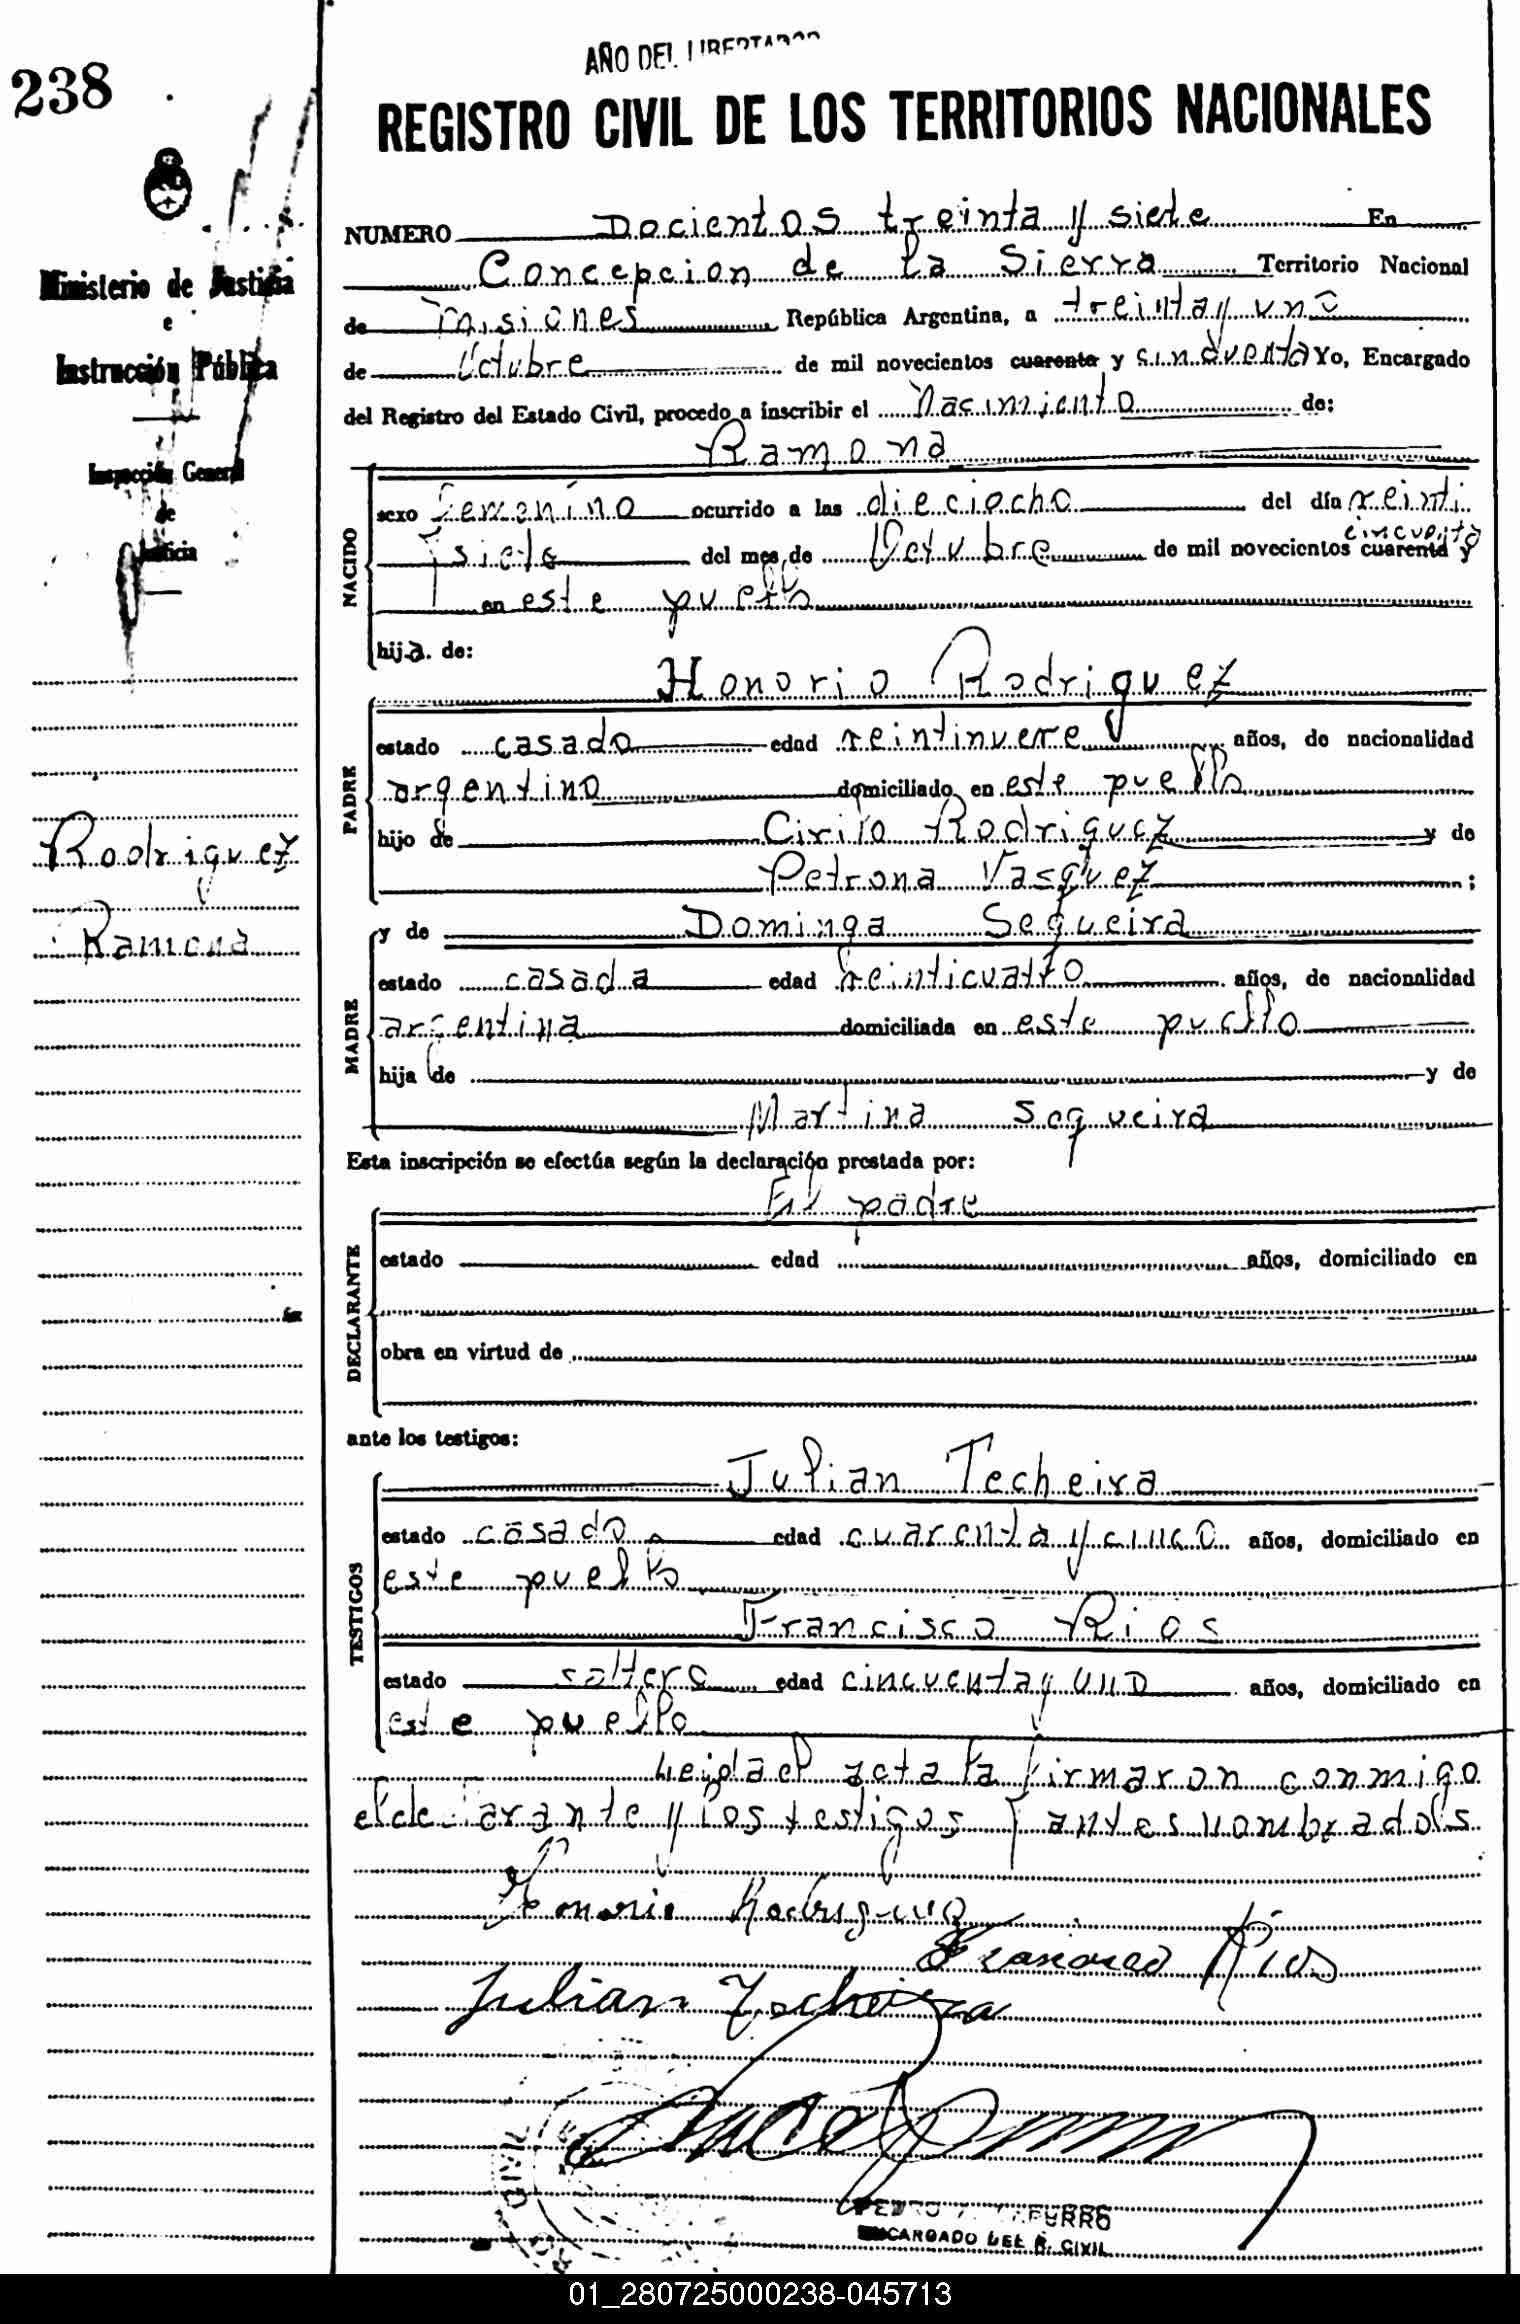 AÑO DEL LIBERTADOR
238
REGISTRO CIVIL DE LOS TERRITORIOS NACIONALES
Ministerio de Justicia
e
Instrucción Pública
Inspección General
de
Justicia
Rodriguez
Ramona
NUMERO Docientos treinta y siete En
Concepcion de la Sierra Territorio Nacional
de Misiones República Argentina, a treinta y uno
de Octubre de mil novecientos cuarenta y cincuenta Yo, Encargado
del Registro del Estado Civil, procedo a inscribir el Nacimiento de:
Ramona
NACIDO
sexo femenino ocurrido a las dieciocho del día veinti
siete del mes de Octubre de mil novecientos cuarenta y cincuenta
en este pueblo
hija de:
Honorio Rodriguez
PADRE
estado casado edad veintinueve años, de nacionalidad
argentino domiciliado en este pueblo
hijo de Cirilo Rodriguez y de
Petrona Vasquez ;
y de Dominga Sequeira
MADRE
estado casada edad veinticuatro años, de nacionalidad
argentina domiciliada en este pueblo
hija de y de
Martina Sequeira
Esta inscripción se efectúa según la declaración prestada por:
El padre
DECLARANTE
estado edad años, domiciliado en
obra en virtud de
ante los testigos:
Julian Techeira
TESTIGOS
estado casado edad cuarenta y cinco años, domiciliado en
este pueblo
Francisco Rios
estado soltero edad cincuenta y uno años, domiciliado en
este pueblo
Leida el acta la firmaron conmigo
el declarante y los testigos antes nombrados
Honorio Rodriguez
Francisco Rios
Julian Techeira
PEDRO
ENCARGADO DEL R. CIVIL
01_280725000238-045713